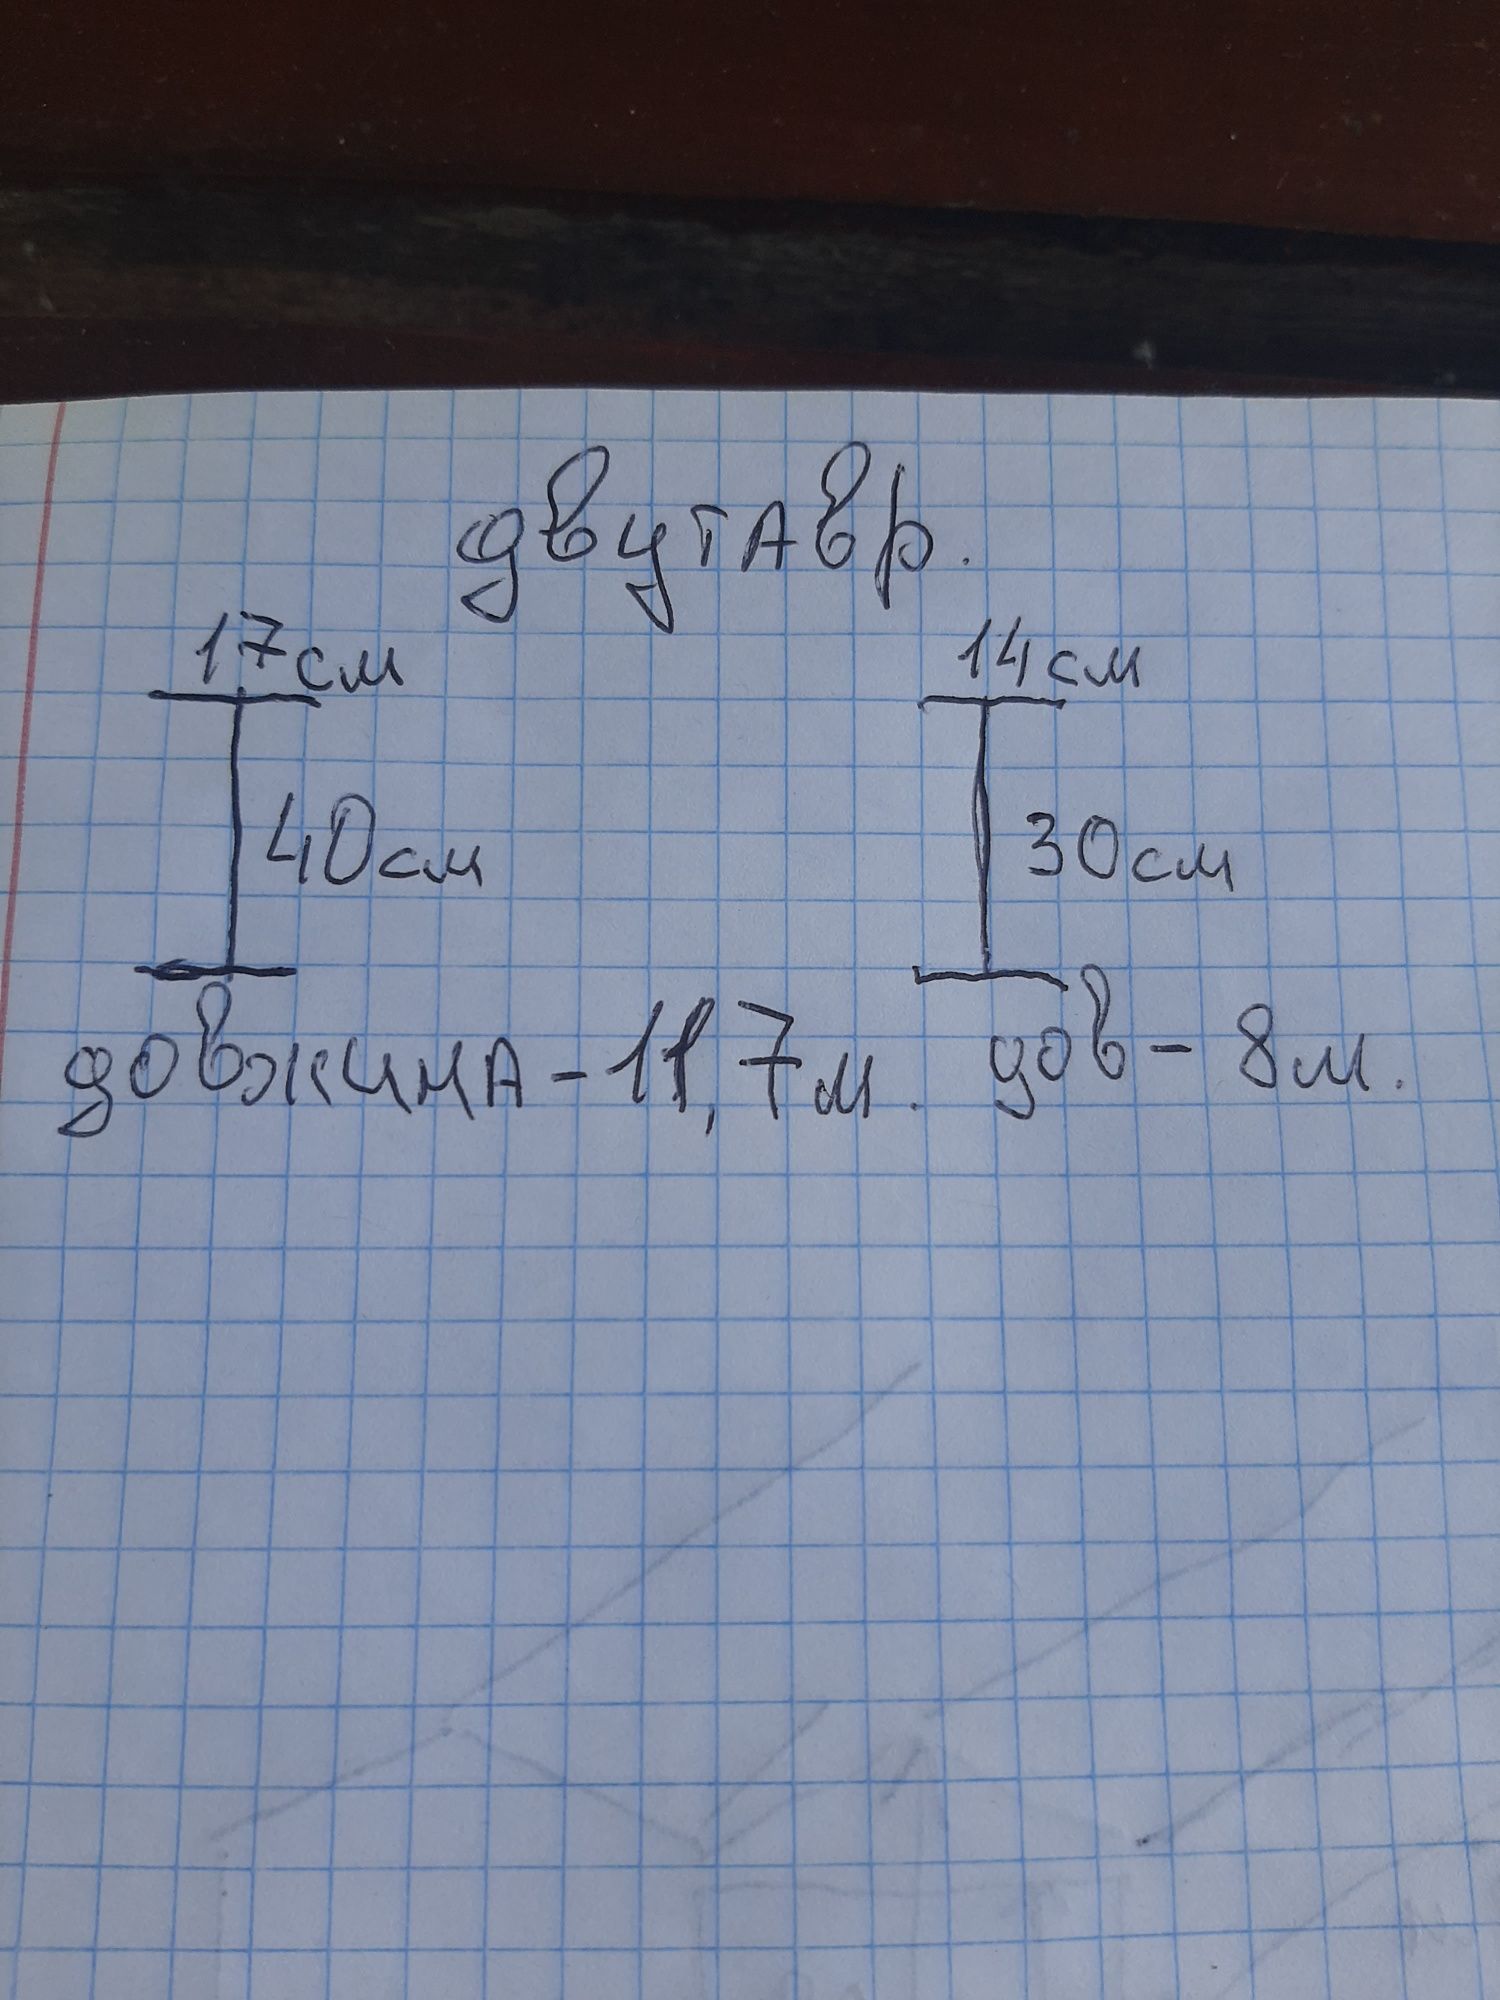 двутавр.
17см 14см
40см 30см
довжина - 11,7м. дов - 8м.